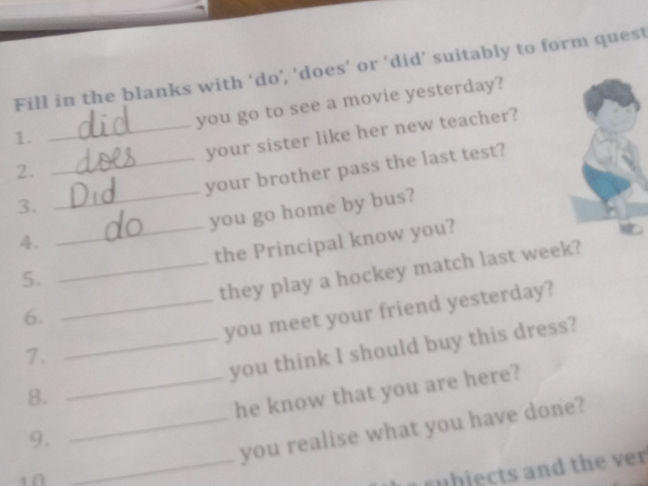 Fill in the blanks with 'do', 'does' or 'did' suitably to form quest
1. did you go to see a movie yesterday?
2. does your sister like her new teacher?
3. Did your brother pass the last test?
4. do you go home by bus?
5. the Principal know you?
6. they play a hockey match last week?
7. you meet your friend yesterday?
8. you think I should buy this dress?
9. he know that you are here?
10 you realise what you have done?
subjects and the ver